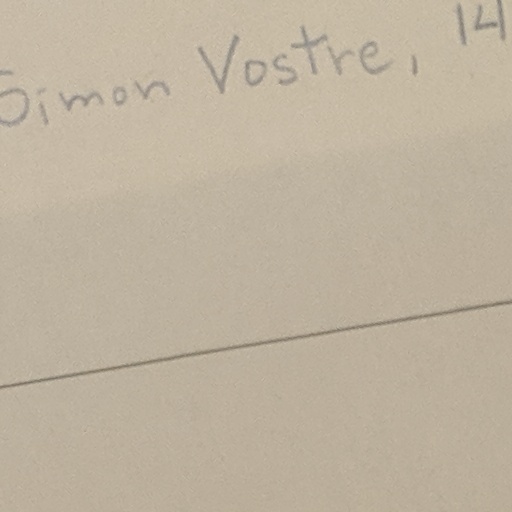 Simon Vostre, 14